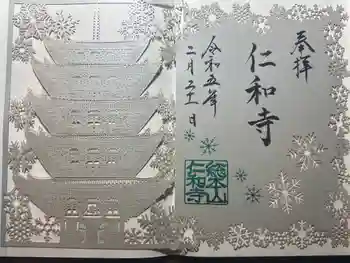 奉拝
仁和寺
令和五年
二月二十一日
総本山
仁和寺